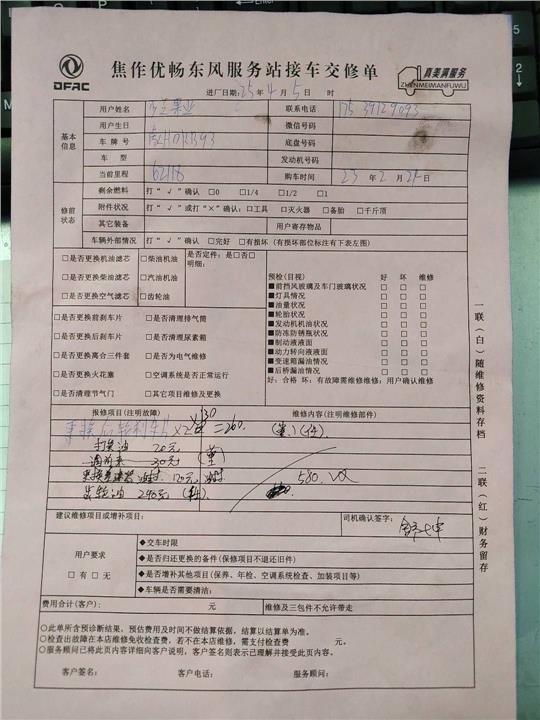 DFAC
焦作优畅东风服务站接车交修单
真美满服务
ZHENMEIMANFUWU
进厂日期:25年 4月 5日 时
基本信息
用户姓名 联系电话
用户生日 微信号码
车牌号 底盘号码
车型 发动机号码
当前里程 62118 购车时间 23年 2月 日
修前状态
剩余燃料 打“√”确认 □0 □1/4 □1/2 □1
附件状况 打“√”或打“×”确认：□工具 □灭火器 □备胎 □千斤顶
其它装备 用户寄存物品
车辆外部情况 打“√”确认 □完好 □有损坏 (有损坏部位标注有下表左图)
□是否更换机油滤芯 □柴油机油 是否定件：是□否□
明细:
□是否更换柴油滤芯 □汽油机油
□是否更换空气滤芯 □齿轮油
□是否更换前刹车片 □是否清理排气筒
□是否更换后刹车片 □是否清理尿素箱
□是否更换离合三件套 □是否为电气维修
□是否更换火花塞 □空调系统是否正常运行
□是否清理节气门 □其它项目维修及更换
预检(目视) 好 坏 维修
■前挡风玻璃及车门玻璃状况 □ □ □
■灯具情况 □ □ □
■油量状况 □ □ □
■轮胎状况 □ □ □
■发动机机油状况 □ □ □
■防冻防锈瓶状况 □ □ □
■制动液液面 □ □ □
■动力转向液液面 □ □ □
■变速箱漏油情况 □ □ □
■后桥漏油情况 □ □ □
好：合格 坏：有故障需维修维修：用户确认维修
报修项目(注明故障) 维修内容(注明维修部件)
更换后轮刹车片×2 ×130 =260.
20元
30元
120元
290元
580.
建议维修项目或增补项目:
司机确认签字:
用户要求
□有 □无
◆交车时限
◆是否归还更换的备件(保修项目不退还旧件)
◆是否增补其他项目(保养、年检、空调系统检查、加装项目等)
◆车辆是否需要清洁:
费用合计(客户): 元 维修及三包件不允许带走
○此单所含预诊断结果，预估费用及时间不做结算依据，结算以结算单为准。
○检查出故障在本店维修免收检查费，若不在本店维修，需支付检查费 元。
○服务顾问已将此页内容详细向客户说明，客户签名则表示已理解并接受此页内容。
客户签名: 客户电话: 服务顾问:
一联（白）随维修资料存档
二联（红）财务留存